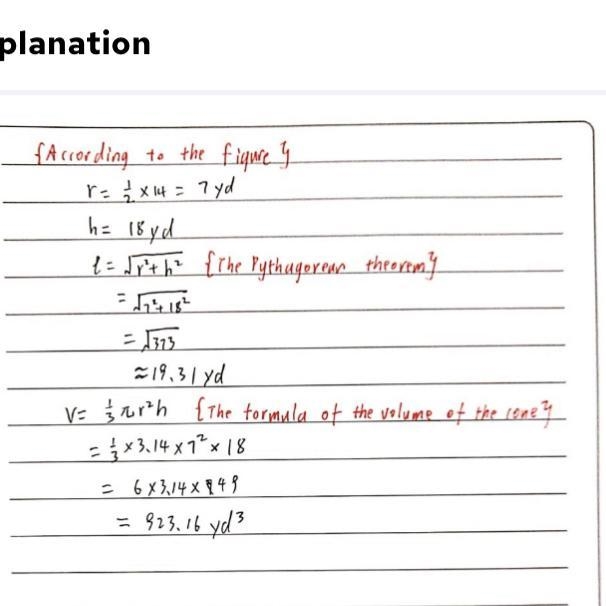 planation
{According to the figure}
r = 1/2 × 14 = 7 yd
h = 18 yd
l = √(r² + h²) {The Pythagorean theorem}
= √(7² + 18²)
= √373
≈ 19.31 yd
V = 1/3 πr²h {The formula of the volume of the cone}
= 1/3 × 3.14 × 7² × 18
= 6 × 3.14 × 49
= 923.16 yd³